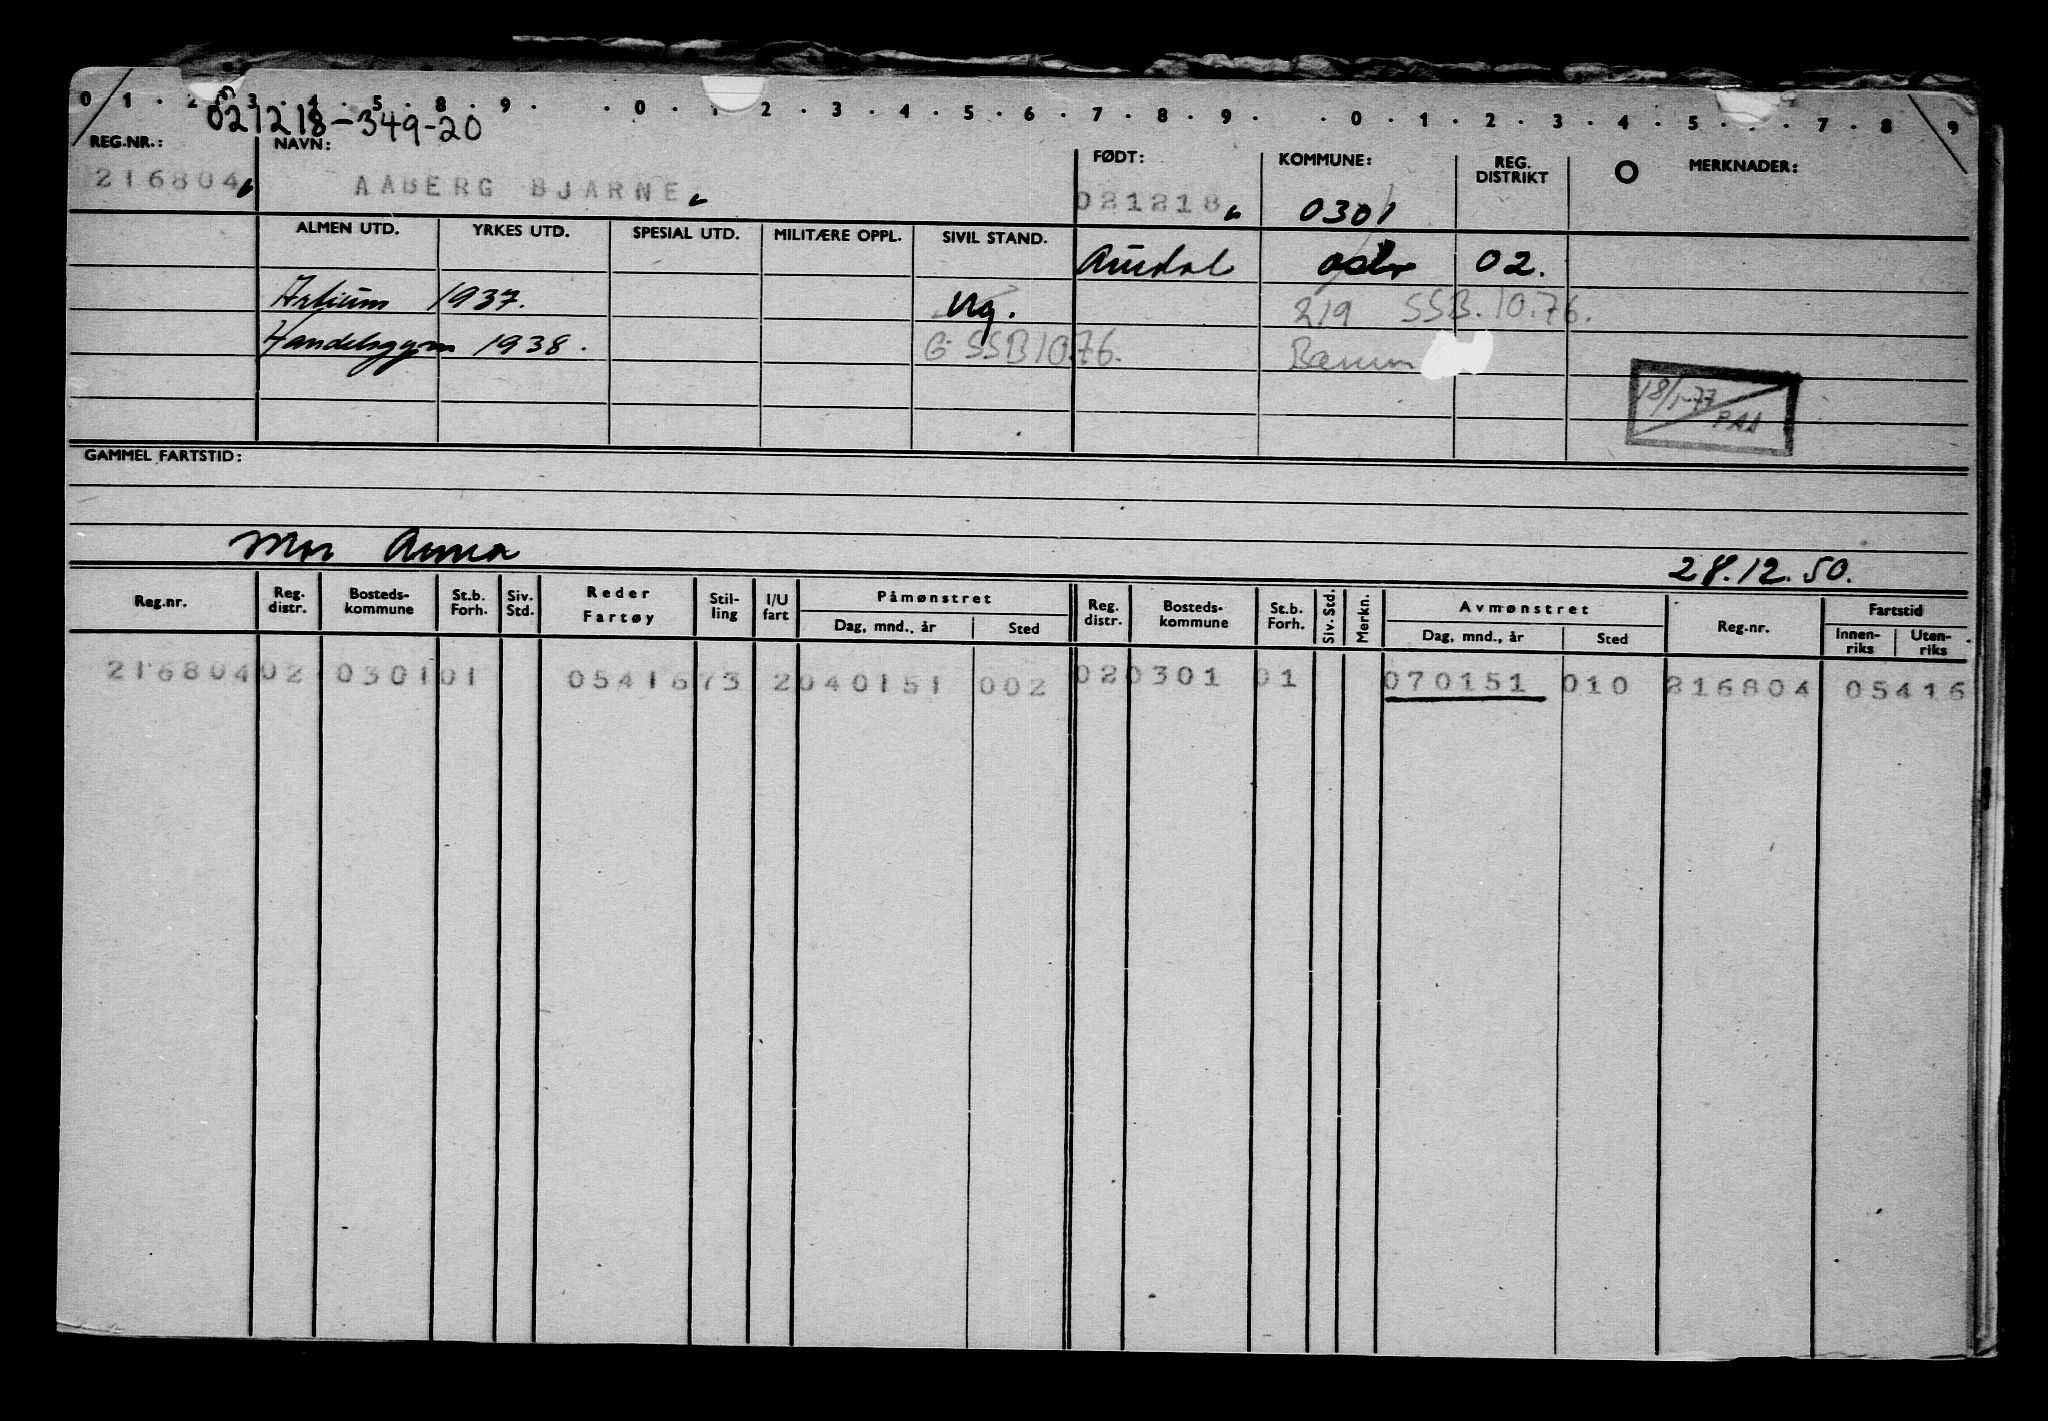 0 1 . 2 3 . 4 . 5 . 8 . 9 . . 0 . 1 . 2 . 3 . 4 . 5 . 6 . 7 . 8 . 9 . . 0 . 1 . 2 . 3 . 4 . 5 . . 7 . 8 9
021218-349-20
REG.NR.: NAVN: FØDT: KOMMUNE: REG. DISTRIKT MERKNADER:
216804 AABERG BJARNE 021218 0301
ALMEN UTD. YRKES UTD. SPESIAL UTD. MILITÆRE OPPL. SIVIL STAND.
Oslo 02.
Artium 1937. Ug. 219 SSB.10.76.
Handelsgym 1938. G SSB 10.76. Bærum
18/1-77
GAMMEL FARTSTID:
Mor Anna 28.12.50.
Reg.nr. Reg. distr. Bosteds-kommune St.b. Forh. Siv. Std. Reder Fartøy Stil-ling I/U fart Påmønstret Dag, mnd., år Sted Reg. distr. Bosteds-kommune St.b. Forh. Siv. Std. Merkn. Avmønstret Dag, mnd., år Sted Reg.nr. Fartstid Innen-riks Uten-riks
216804 02 0301 01 05416 73 2 040151 002 02 0301 01 070151 010 216804 05416